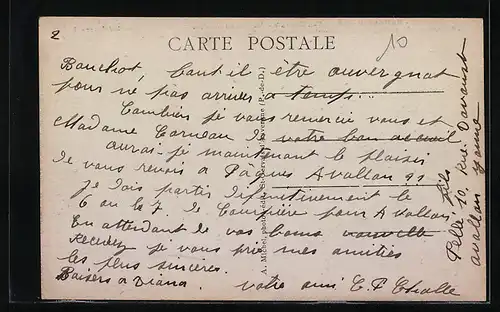 2
10
CARTE POSTALE
Bauchot, Caut-il être auvergnat
pour ne pas arriver à temps...
Combien je vous remercie vous et
Madame Corneau de votre bon accueil
aurai-je maintenant le plaisir
de vous revoir à Pâques Avallon
je dois partir définitivement le
6 ou la 7 de Courpière pour Avallon
En attendant de vos bonnes
Recevez je vous prie mes amitiés
les plus sincères.
Baisers à Diana. votre ami
A. Michel, phot.-édit.
Pelle fils
10, Rue
Avallon Yonne